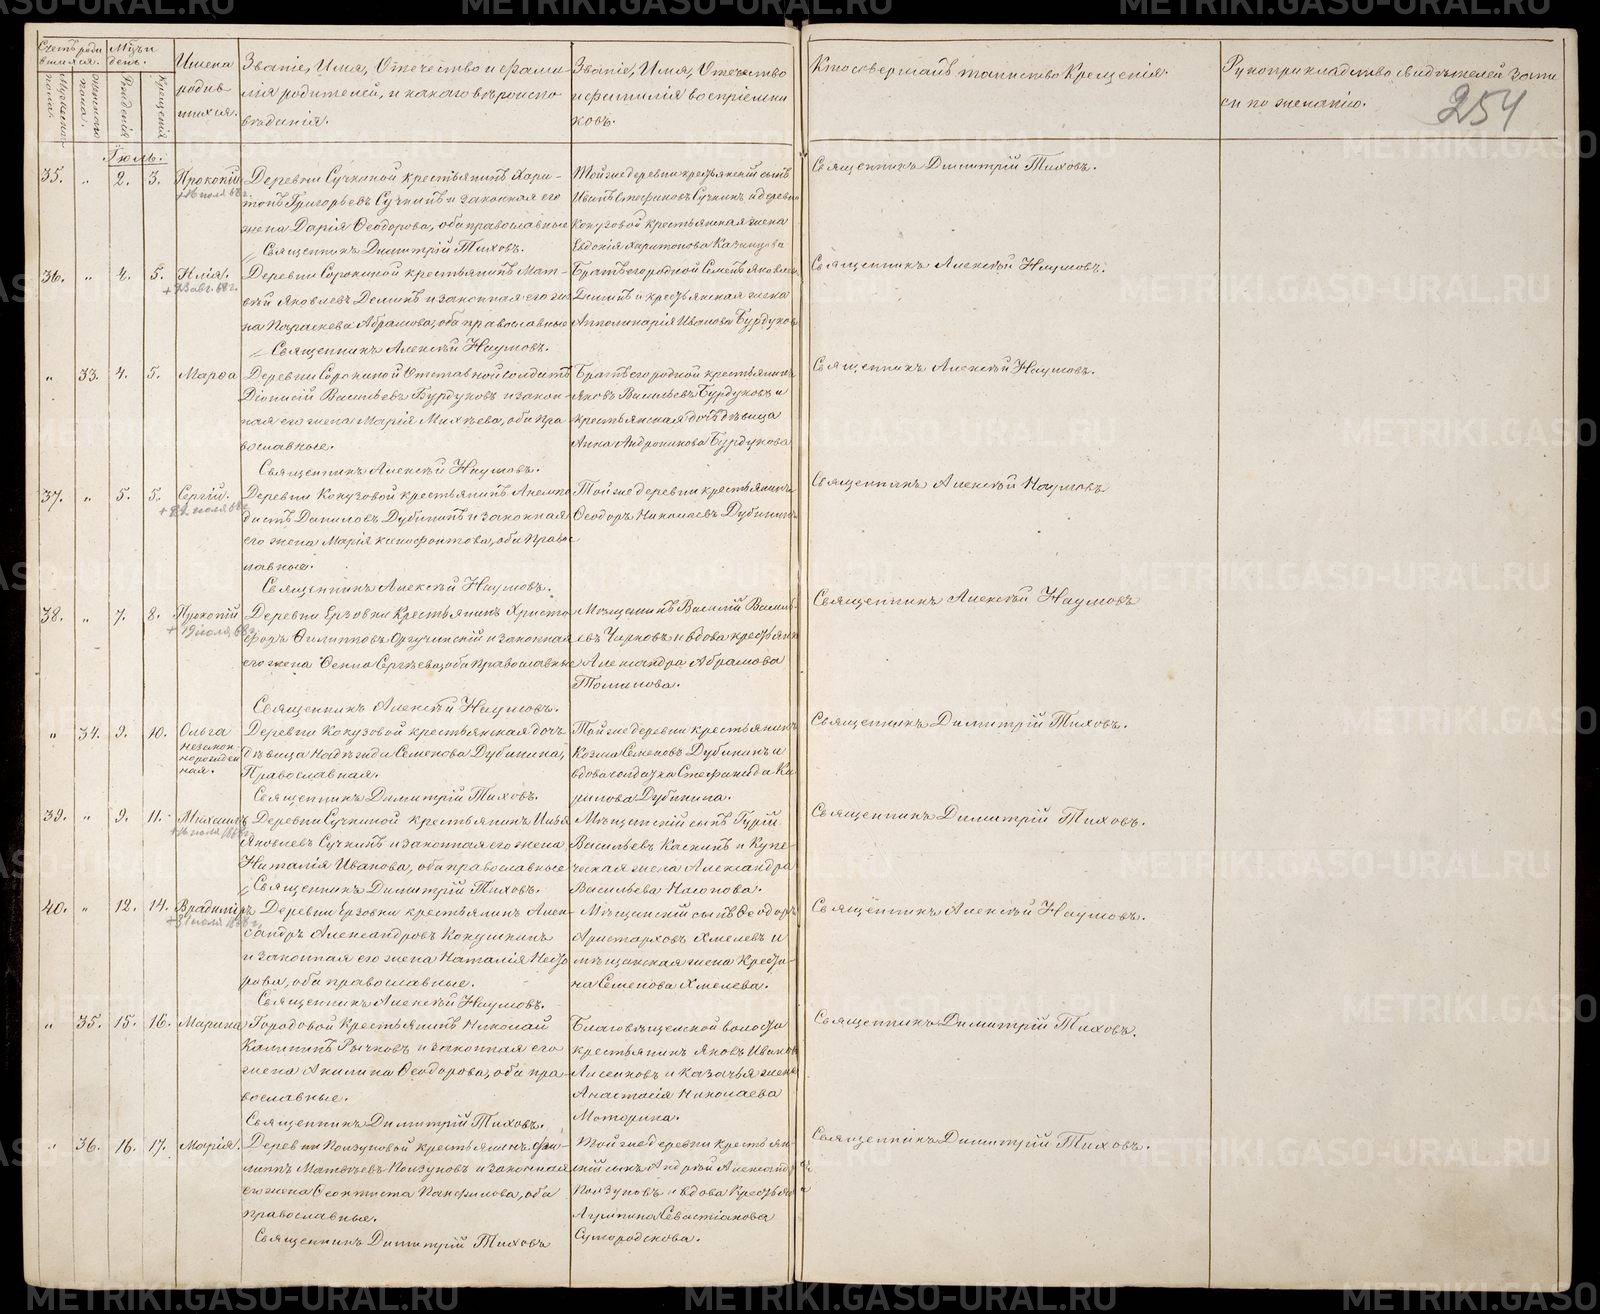 Счетъ роди
вшихся.
Мужескаго
пола.
Женскаго
пола.
Мцъ и
день.
Рожденія
Крещенія
Имена
родив
шихся.
Званіе, Имя, Отечество и фами
лія родителей, и какого вѣроиспо
вѣданія.
Званіе, Имя, Отечество
и фамилія воспріемни
ковъ.
Кто совершалъ таинство Крещенія.
Рукоприкладство свидѣтелей Запи
си по желанію.
254
Іюль.
35. „ 2. 3. Прокопій
Деревни Сучкиной крестьянинъ Хари-
тонъ Григорьевъ Сучкинъ и законная его
жена Дарія Ѳеодорова, оба православные
Священникъ Димитрій Тиховъ.
Той же деревни крестьянскій сынъ
Иванъ Стефановъ Сучкинъ и деревни
Кокузовой крестьянская жена
Евдокія Харитонова Казанцова
Священникъ Димитрій Тиховъ.
36. „ 4. 5. Илія.
Деревни Сорокиной крестьянинъ Мат-
вѣй Яковлевъ Деминъ и законная его же
на Параскева Абрамова, оба православные
Священникъ Алексѣй Наумовъ.
Братъ его родной Семенъ Яковлевъ
Деминъ и крестьянская жена
Апполинарія Иванова Бурдукова
Священникъ Алексѣй Наумовъ.
„ 33. 4. 5. Марѳа
Деревни Сорокиной Отставной солдатъ
Діонисій Васильевъ Бурдуковъ и закон-
ная его жена Марія Михѣева, оба пра
вославные.
Священникъ Алексѣй Наумовъ.
Братъ его родной крестьянинъ
Яковъ Васильевъ Бурдуковъ и
крестьянская дочь дѣвица
Анна Андроникова Бурдукова
Священникъ Алексѣй Наумовъ.
37. „ 5. 5. Сергій.
Деревни Кокузовой крестьянинъ Анемпо
дистъ Даниловъ Дубининъ и законная
его жена Марія Ксенофонтова, оба Правос
лавные.
Священникъ Алексѣй Наумовъ.
Той же деревни крестьянинъ
Ѳеодоръ Николаевъ Дубининъ
Священникъ Алексѣй Наумовъ
38. „ 7. 8. Прокопій
Деревни Ерзовки Крестьянинъ Христо
форъ Филипповъ и законная
его жена Ѳекла Сергѣева, оба православные
Священникъ Алексѣй Наумовъ.
Мѣщанинъ Василій Василь-
евъ Чирковъ и вдова крестьянка
Александра Абрамова
Томилова.
Священникъ Алексѣй Наумовъ
„ 34. 9. 10. Ольга
незакон
норожден
ная.
Деревни Кокузовой крестьянская дочь
дѣвица Надежда Семенова Дубинина,
Православная.
Священникъ Димитрій Тиховъ.
Той же деревни крестьянинъ
Козма Семеновъ Дубининъ и
вдова солдатка Стефанида Ки
рилова Дубинина.
Священникъ Димитрій Тиховъ.
39. „ 9. 11. Михаилъ
Деревни Сучкиной крестьянинъ Илья
Яковлевъ Сучкинъ и законная его жена
Наталія Иванова, оба православные
Священникъ Димитрій Тиховъ.
Мѣщанскій сынъ Гурій
Васильевъ Каскинъ и Купе-
ческая жена Александра
Васильева Насонова.
Священникъ Димитрій Тиховъ.
40. „ 12. 14. Владиміръ
Деревни Ерзовки крестьянинъ Алек-
сандръ Александровъ Кокушкинъ
и законная его жена Наталія Несто
рова, оба православные.
Священникъ Алексѣй Наумовъ.
Мѣщанскій сынъ Ѳеодоръ
Аристарховъ Хмелевъ и
мѣщанская жена Крестья-
на Семенова Хмелева.
Священникъ Алексѣй Наумовъ.
„ 35. 15. 16. Марина
Городовой Крестьянинъ Николай
Калининъ Рычковъ и законная его
жена Акилина Ѳеодорова, оба пра-
вославные.
Священникъ Димитрій Тиховъ.
Благовѣщенской волости
крестьянинъ Яковъ Ивановъ
Лисенковъ и Казачья жена
Анастасія Николаева
Моторина.
Священникъ Димитрій Тиховъ.
„ 36. 16. 17. Марія.
Деревни Ползуновой крестьянинъ Фи-
липпъ Матвѣевъ Ползуновъ и законная
его жена Ѳеоктиста Панфилова, оба
православные.
Священникъ Димитрій Тиховъ
Той же деревни крестьян-
скій сынъ Андрей Александр
Ползуновъ и вдова Крестья
Агрипина Севастіанова
Сумородскова.
Священникъ Димитрій Тиховъ.
METRIKI.GASO-URAL.RU